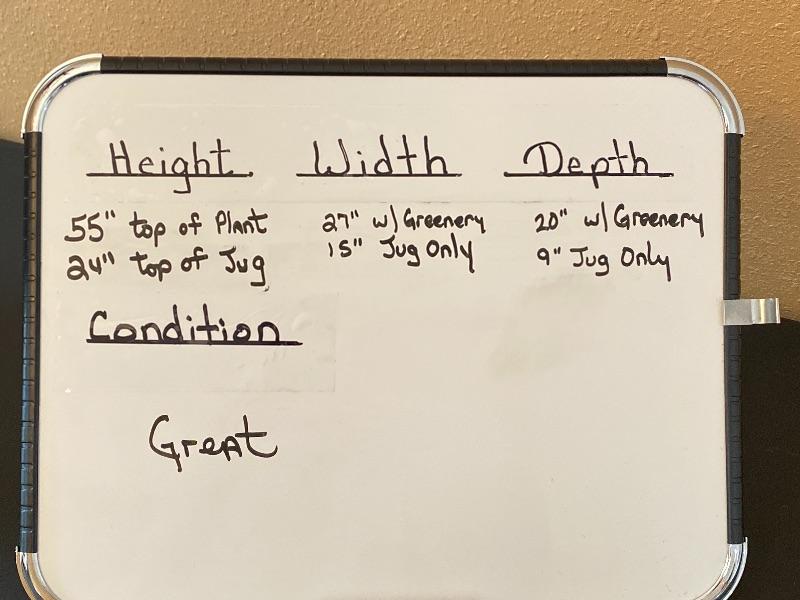 Height Width Depth
55" top of Plant 27" w/ Greenery 20" w/ Greenery
24" top of Jug 15" Jug Only 9" Jug Only
Condition
Great